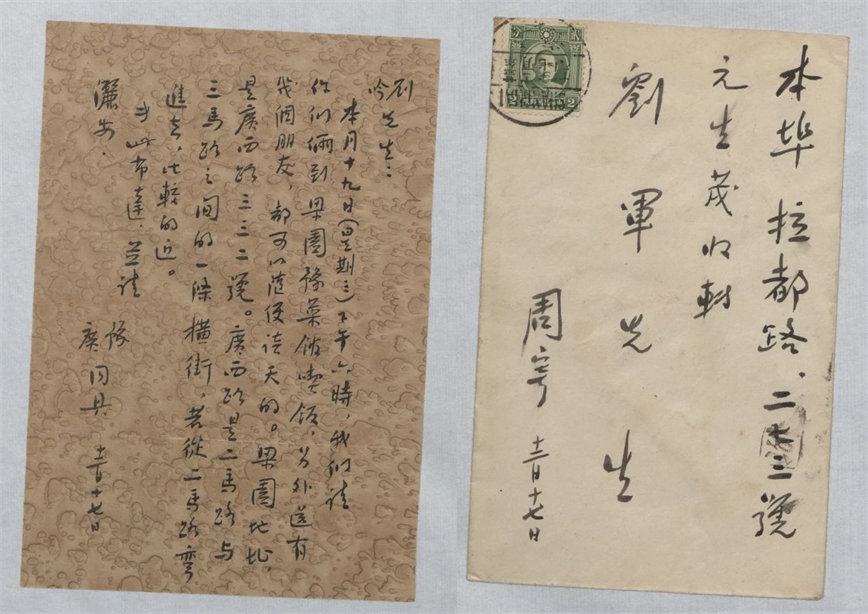 劉
吟先生：
本月十九日（星期三）下午六時，我們請
你們倆到梁園豫菜館喫飯，另外還有
幾個朋友，都可以隨便談天的。梁園地址，
是廣西路三三二號。廣西路是二馬路與
三馬路之間的一條橫街，若從二馬路彎
進去，比較的近。
專此布達，並請
儷安．
豫
廣 同具 十二月十七日
本埠拉都路，二 三號
元生茂收轉
劉軍先生
周寄 十二月十七日